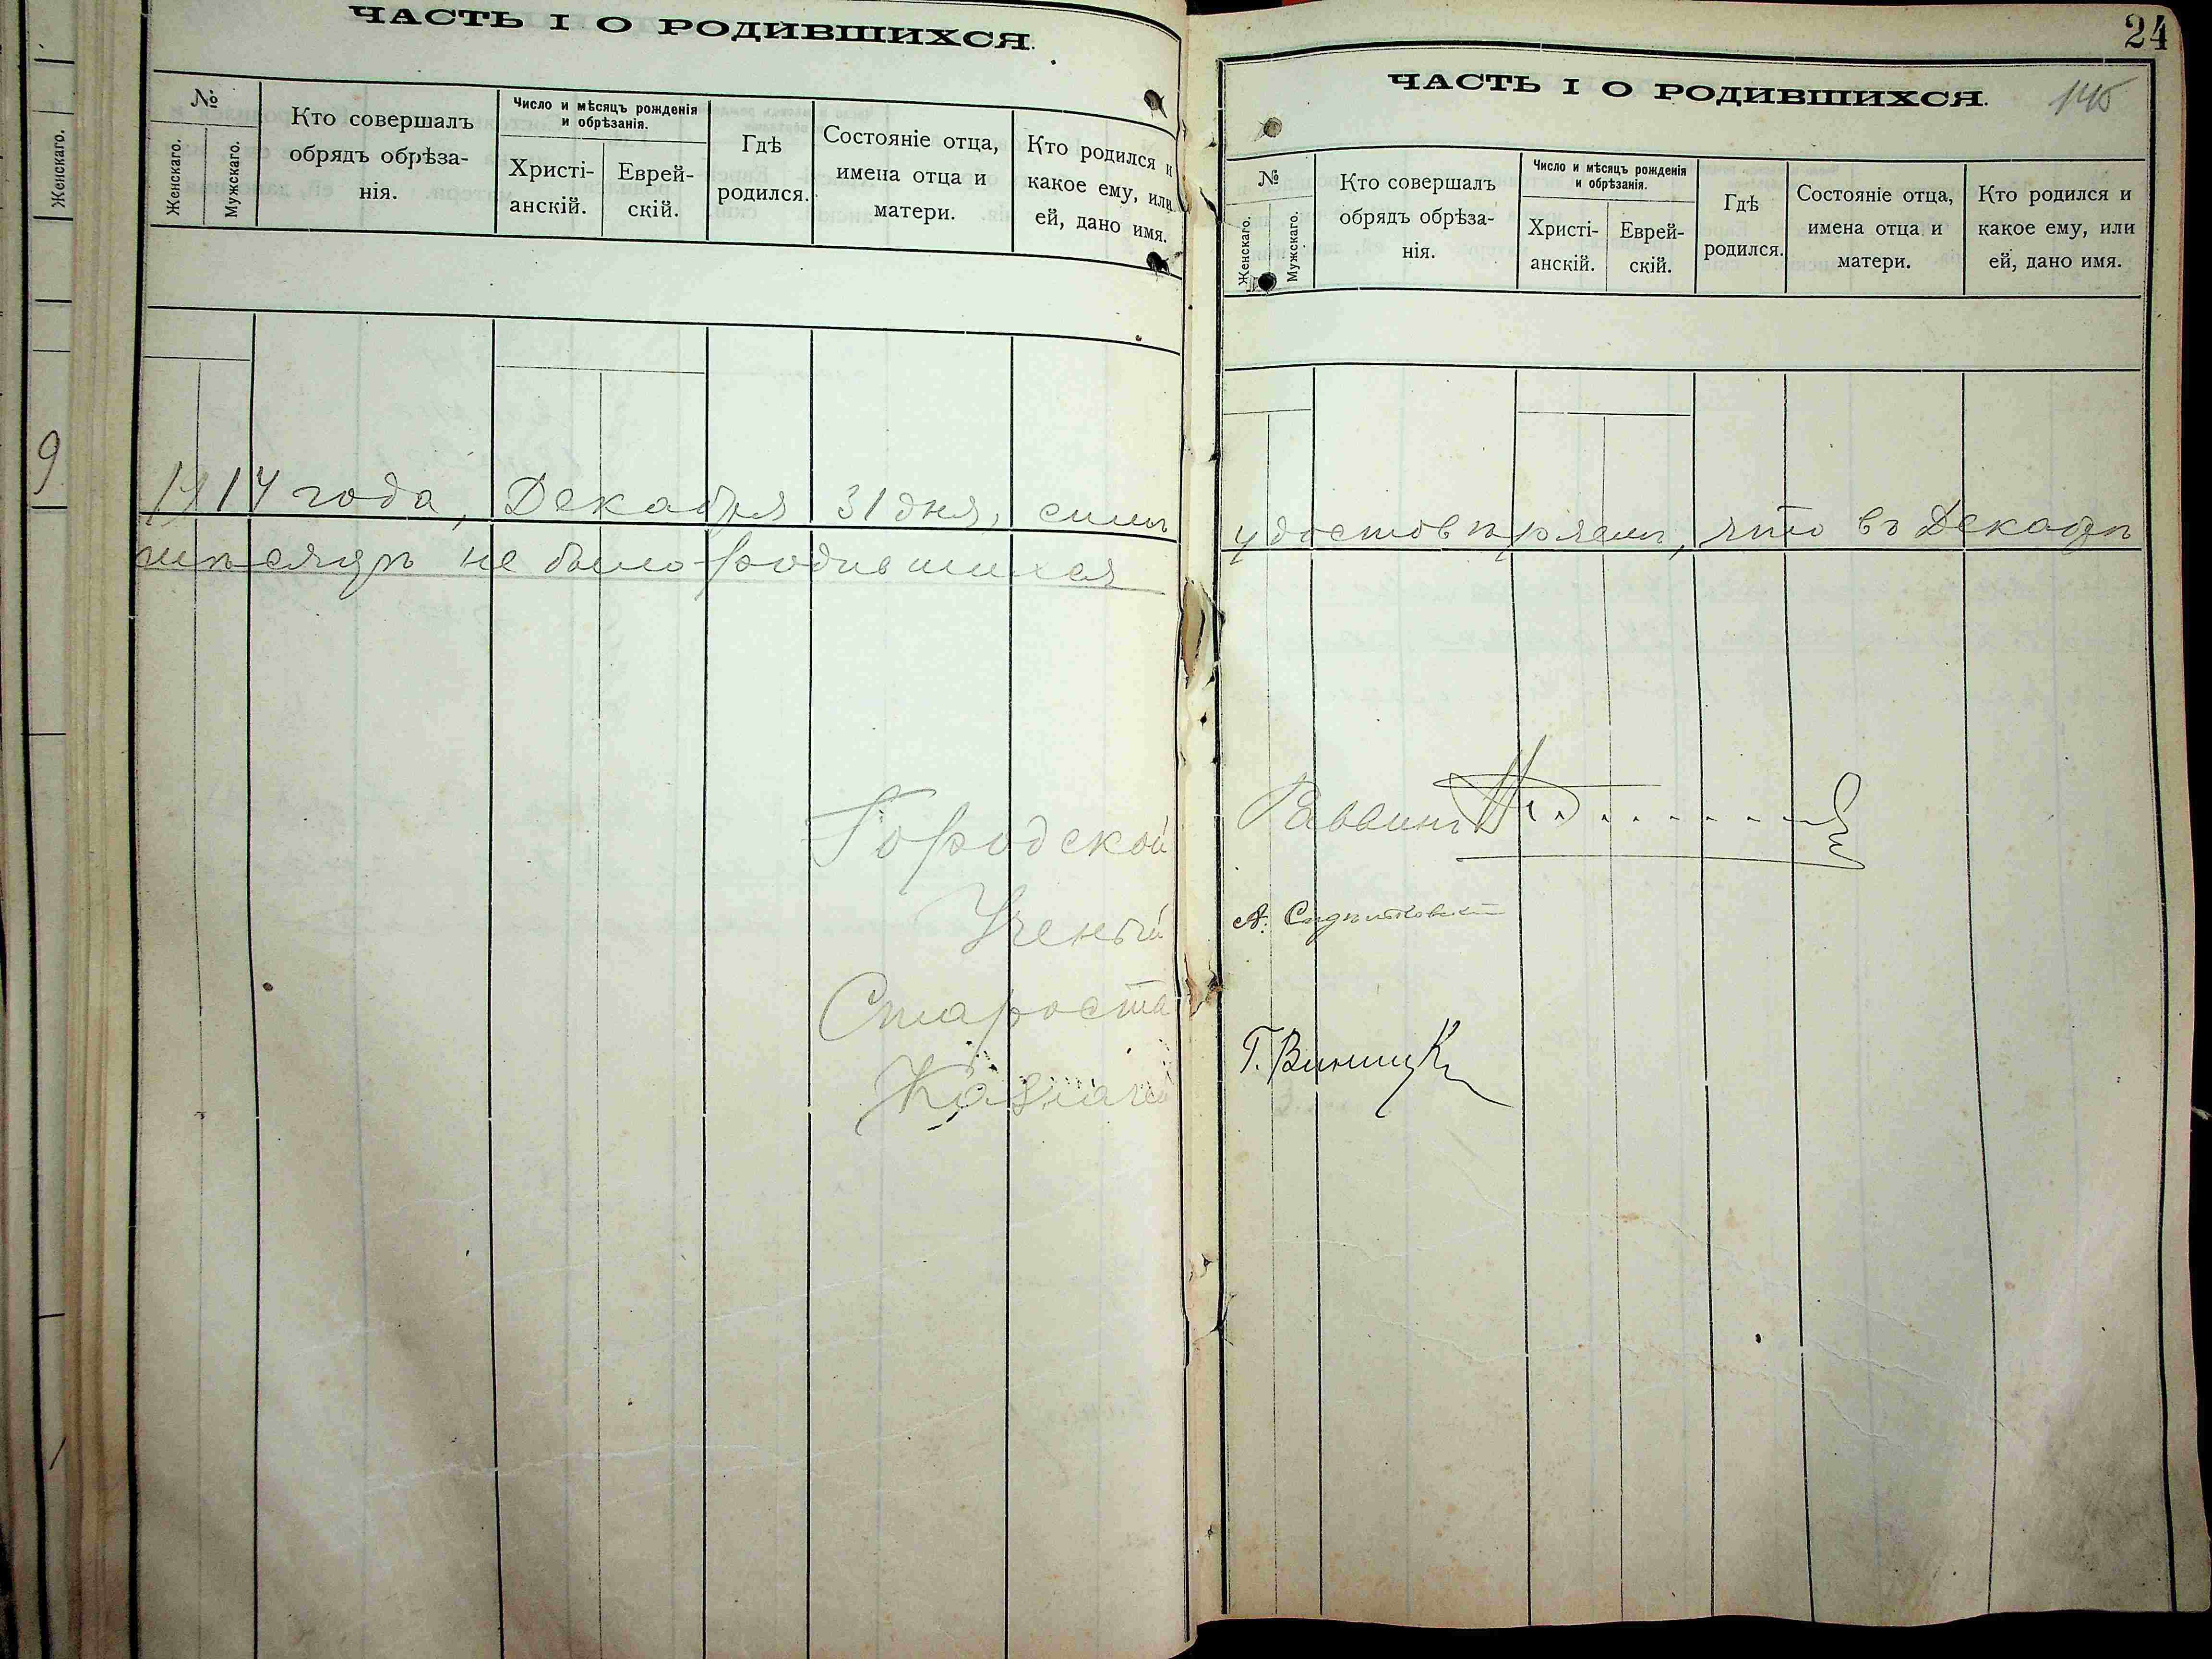 ЧАСТЬ I О РОДИВШИХСЯ.
№
Женскаго.
Мужскаго.
Кто совершалъ
обрядъ обрѣза-
нія.
Число и мѣсяцъ рожденія
и обрѣзанія.
Христі-
анскій.
Еврей-
скій.
Гдѣ
родился.
Состояніе отца,
имена отца и
матери.
Кто родился и
какое ему, или
ей, дано имя.
1914 года, Декабря 31 дня, симъ
мѣсяцѣ не было родившихся
Городской
Ученый
Староста
Казначей
Женскаго.
9
24
145
ЧАСТЬ I О РОДИВШИХСЯ.
№
Женскаго.
Мужскаго.
Кто совершалъ
обрядъ обрѣза-
нія.
Число и мѣсяцъ рожденія
и обрѣзанія.
Христі-
анскій.
Еврей-
скій.
Гдѣ
родился.
Состояніе отца,
имена отца и
матери.
Кто родился и
какое ему, или
ей, дано имя.
удостовѣряемъ, что въ Декабрѣ
Раввинъ
А.
Г. Виницк